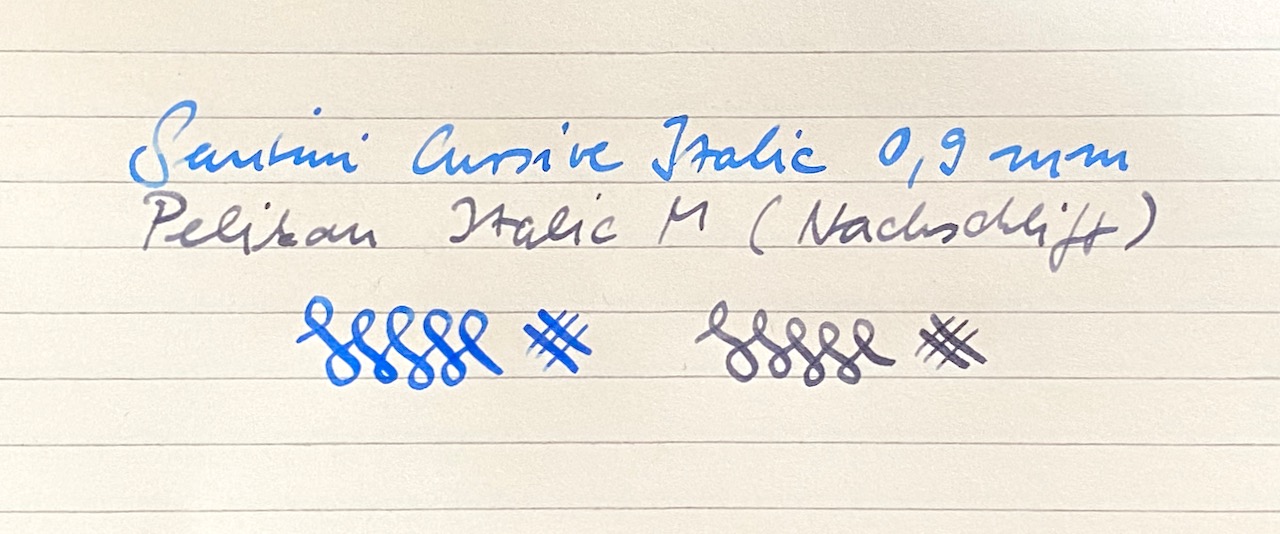 Santini Cursive Italic 0,9 mm
Pelikan Italic M (Nachschliff)